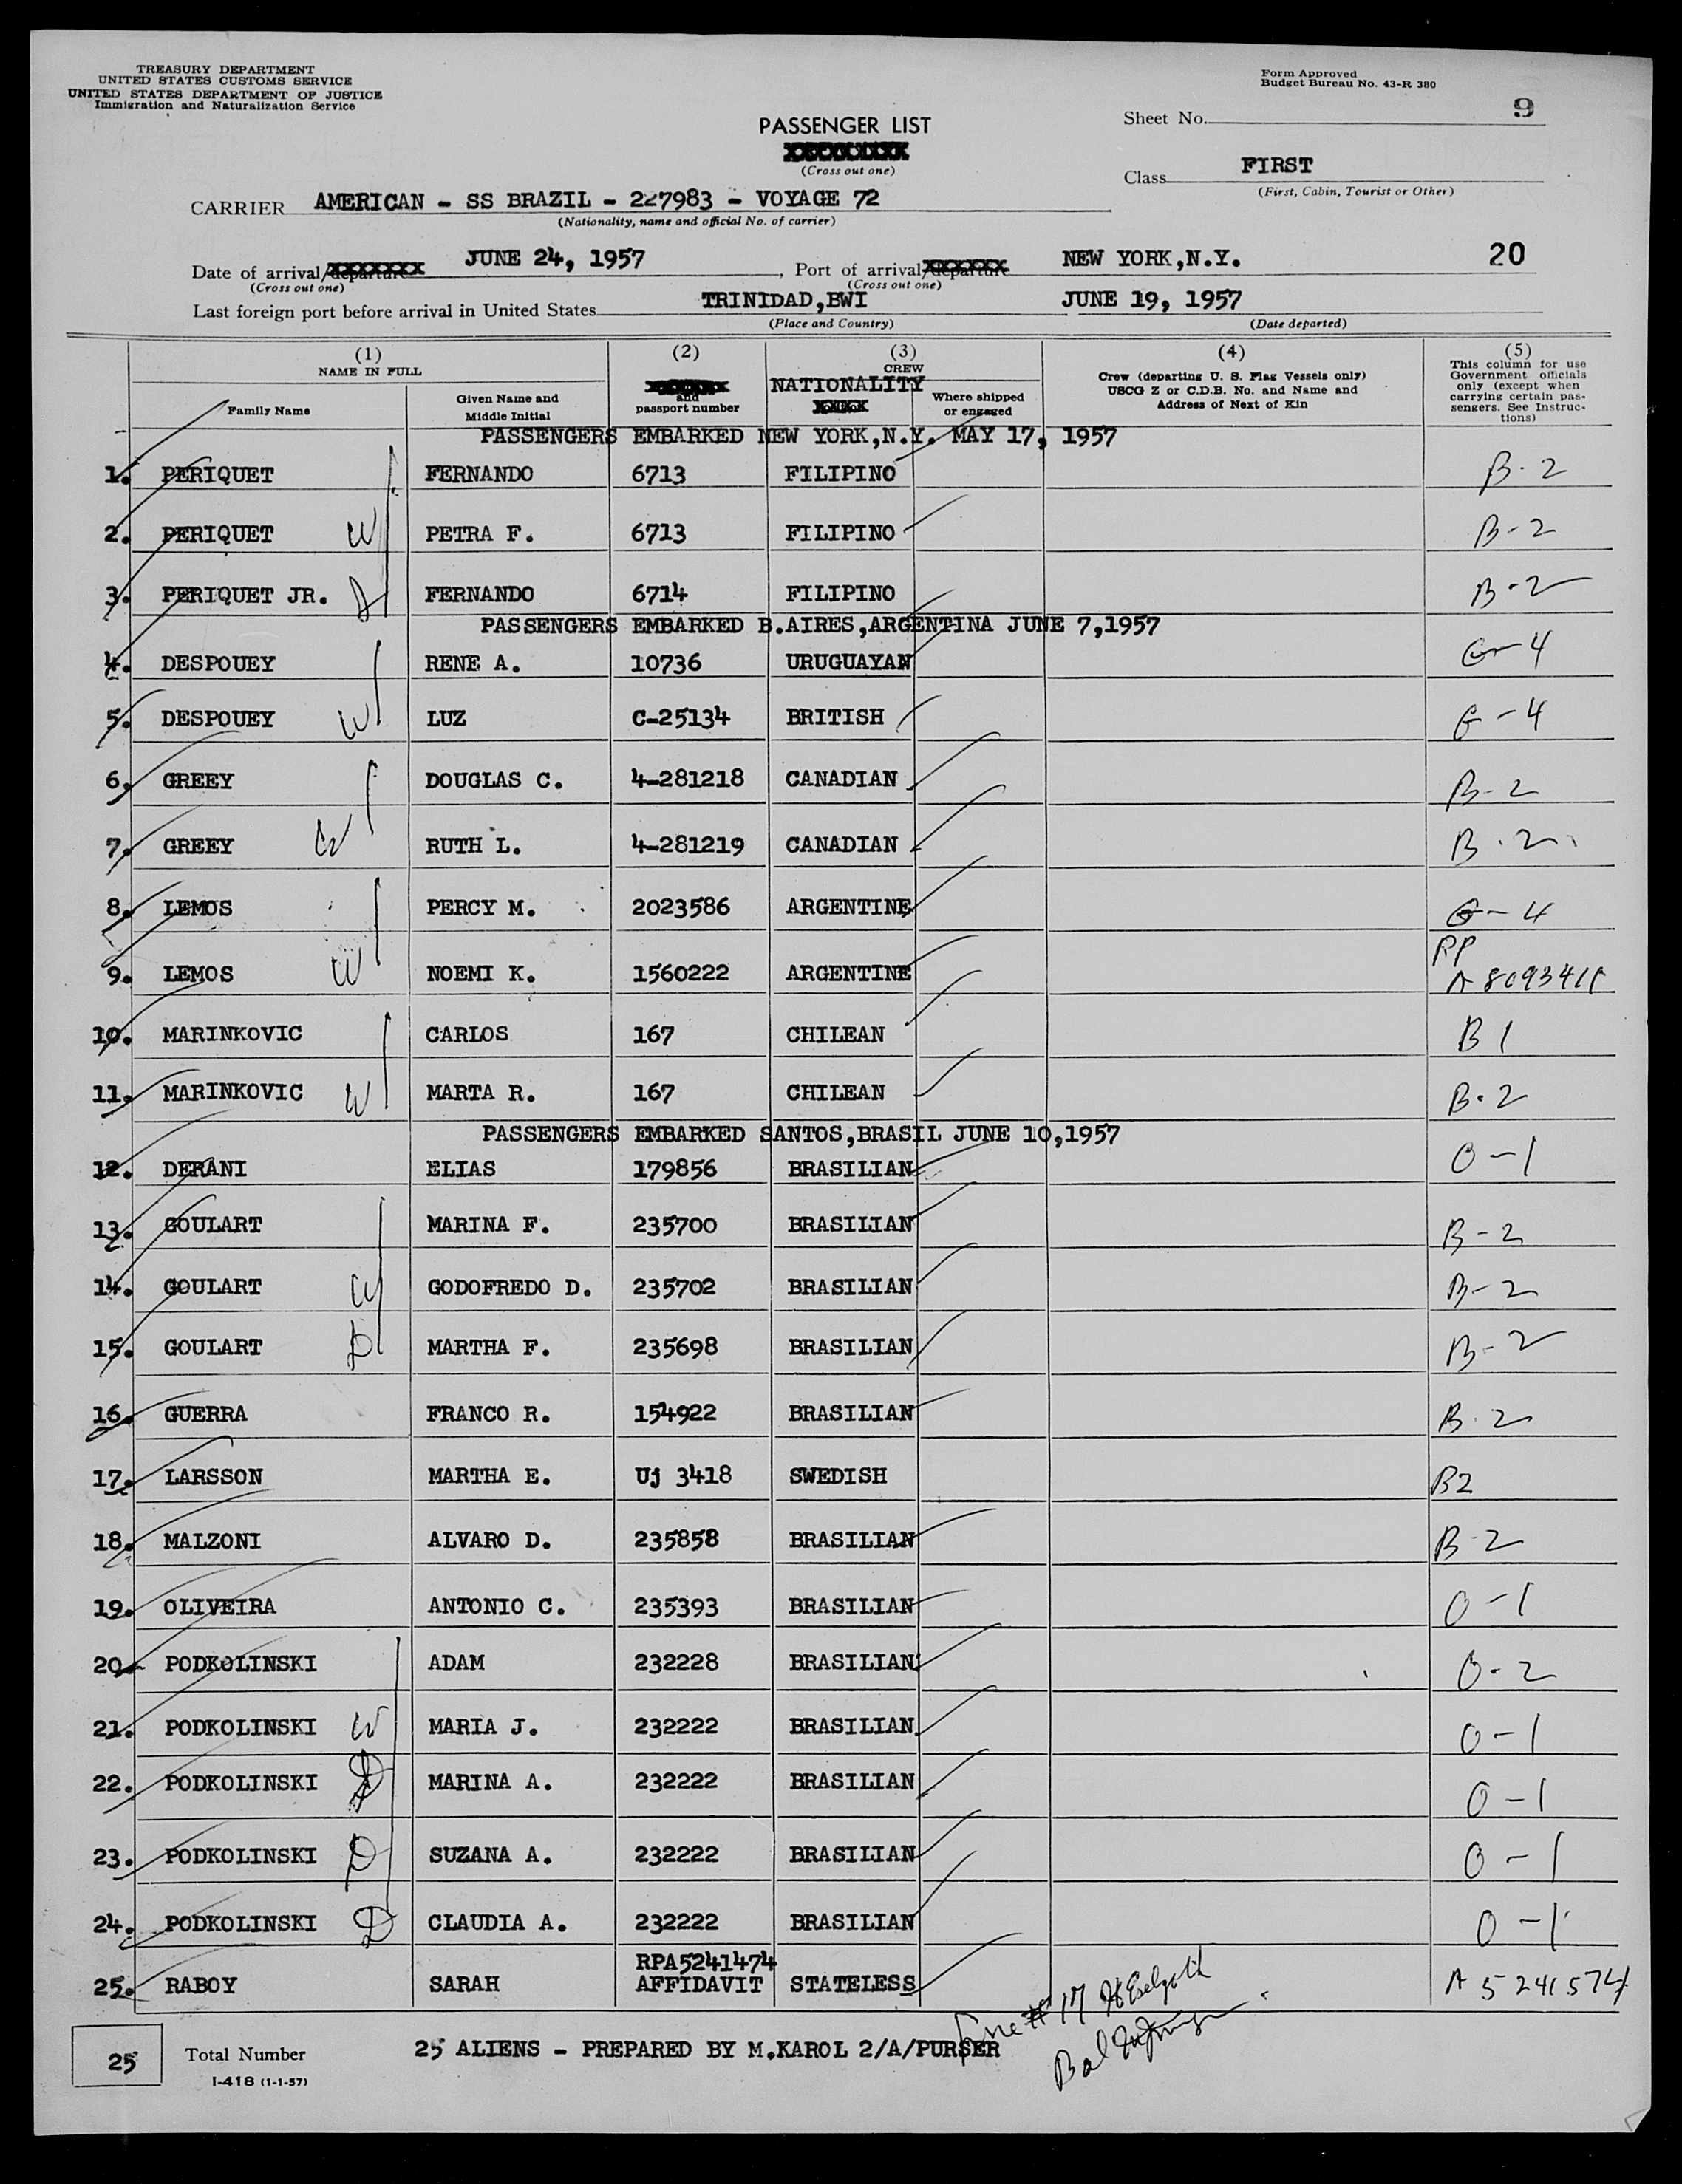 TREASURY DEPARTMENT
UNITED STATES CUSTOMS SERVICE
UNITED STATES DEPARTMENT OF JUSTICE
Immigration and Naturalization Service
Form Approved
Budget Bureau No. 43-R 380
Sheet No. 9
PASSENGER LIST
(Cross out one)
Class FIRST
(First, Cabin, Tourist or Other)
CARRIER AMERICAN - SS BRAZIL - 227983 - VOYAGE 72
(Nationality, name and official No. of carrier)
Date of arrival/departure JUNE 24, 1957, Port of arrival/departure NEW YORK,N.Y. 20
(Cross out one) (Cross out one)
Last foreign port before arrival in United States TRINIDAD,BWI JUNE 19, 1957
(Place and Country) (Date departed)
(1) (2) (3) (4) (5)
NAME IN FULL
Family Name
Given Name and
Middle Initial
and
passport number
CREW
NATIONALITY
Where shipped
or engaged
Crew (departing U. S. Flag Vessels only)
USCG Z or C.D.B. No. and Name and
Address of Next of Kin
This column for use
Government officials
only (except when
carrying certain pas-
sengers. See Instruc-
tions)
PASSENGERS EMBARKED NEW YORK,N.Y. MAY 17, 1957
1. PERIQUET FERNANDO 6713 FILIPINO B-2
2. PERIQUET W PETRA F. 6713 FILIPINO B-2
3. PERIQUET JR. FERNANDO 6714 FILIPINO B-2
PASSENGERS EMBARKED B.AIRES,ARGENTINA JUNE 7,1957
4. DESPOUEY RENE A. 10736 URUGUAYAN G-4
5. DESPOUEY W LUZ C-25134 BRITISH G-4
6. GREEY DOUGLAS C. 4-281218 CANADIAN B-2
7. GREEY W RUTH L. 4-281219 CANADIAN B-2
8. LEMOS PERCY M. 2023586 ARGENTINE G-4
9. LEMOS W NOEMI K. 1560222 ARGENTINE RP
10. MARINKOVIC CARLOS 167 CHILEAN B1
11. MARINKOVIC W MARTA R. 167 CHILEAN B-2
PASSENGERS EMBARKED SANTOS,BRASIL JUNE 10,1957
12. DERANI ELIAS 179856 BRASILIAN O-1
13. GOULART MARINA F. 235700 BRASILIAN B-2
14. GOULART W GODOFREDO D. 235702 BRASILIAN B-2
15. GOULART D MARTHA F. 235698 BRASILIAN B-2
16. GUERRA FRANCO R. 154922 BRASILIAN B-2
17. LARSSON MARTHA E. Uj 3418 SWEDISH B2
18. MALZONI ALVARO D. 235858 BRASILIAN B-2
19. OLIVEIRA ANTONIO C. 235393 BRASILIAN O-1
20. PODKOLINSKI ADAM 232228 BRASILIAN O-2
21. PODKOLINSKI W MARIA J. 232222 BRASILIAN O-1
22. PODKOLINSKI D MARINA A. 232222 BRASILIAN O-1
23. PODKOLINSKI D SUZANA A. 232222 BRASILIAN O-1
24. PODKOLINSKI D CLAUDIA A. 232222 BRASILIAN O-1
RPA5241474
25. RABOY SARAH AFFIDAVIT STATELESS A 5241574
Line # 17
25 Total Number
25 ALIENS - PREPARED BY M.KAROL 2/A/PURSER
I-418 (1-1-57)